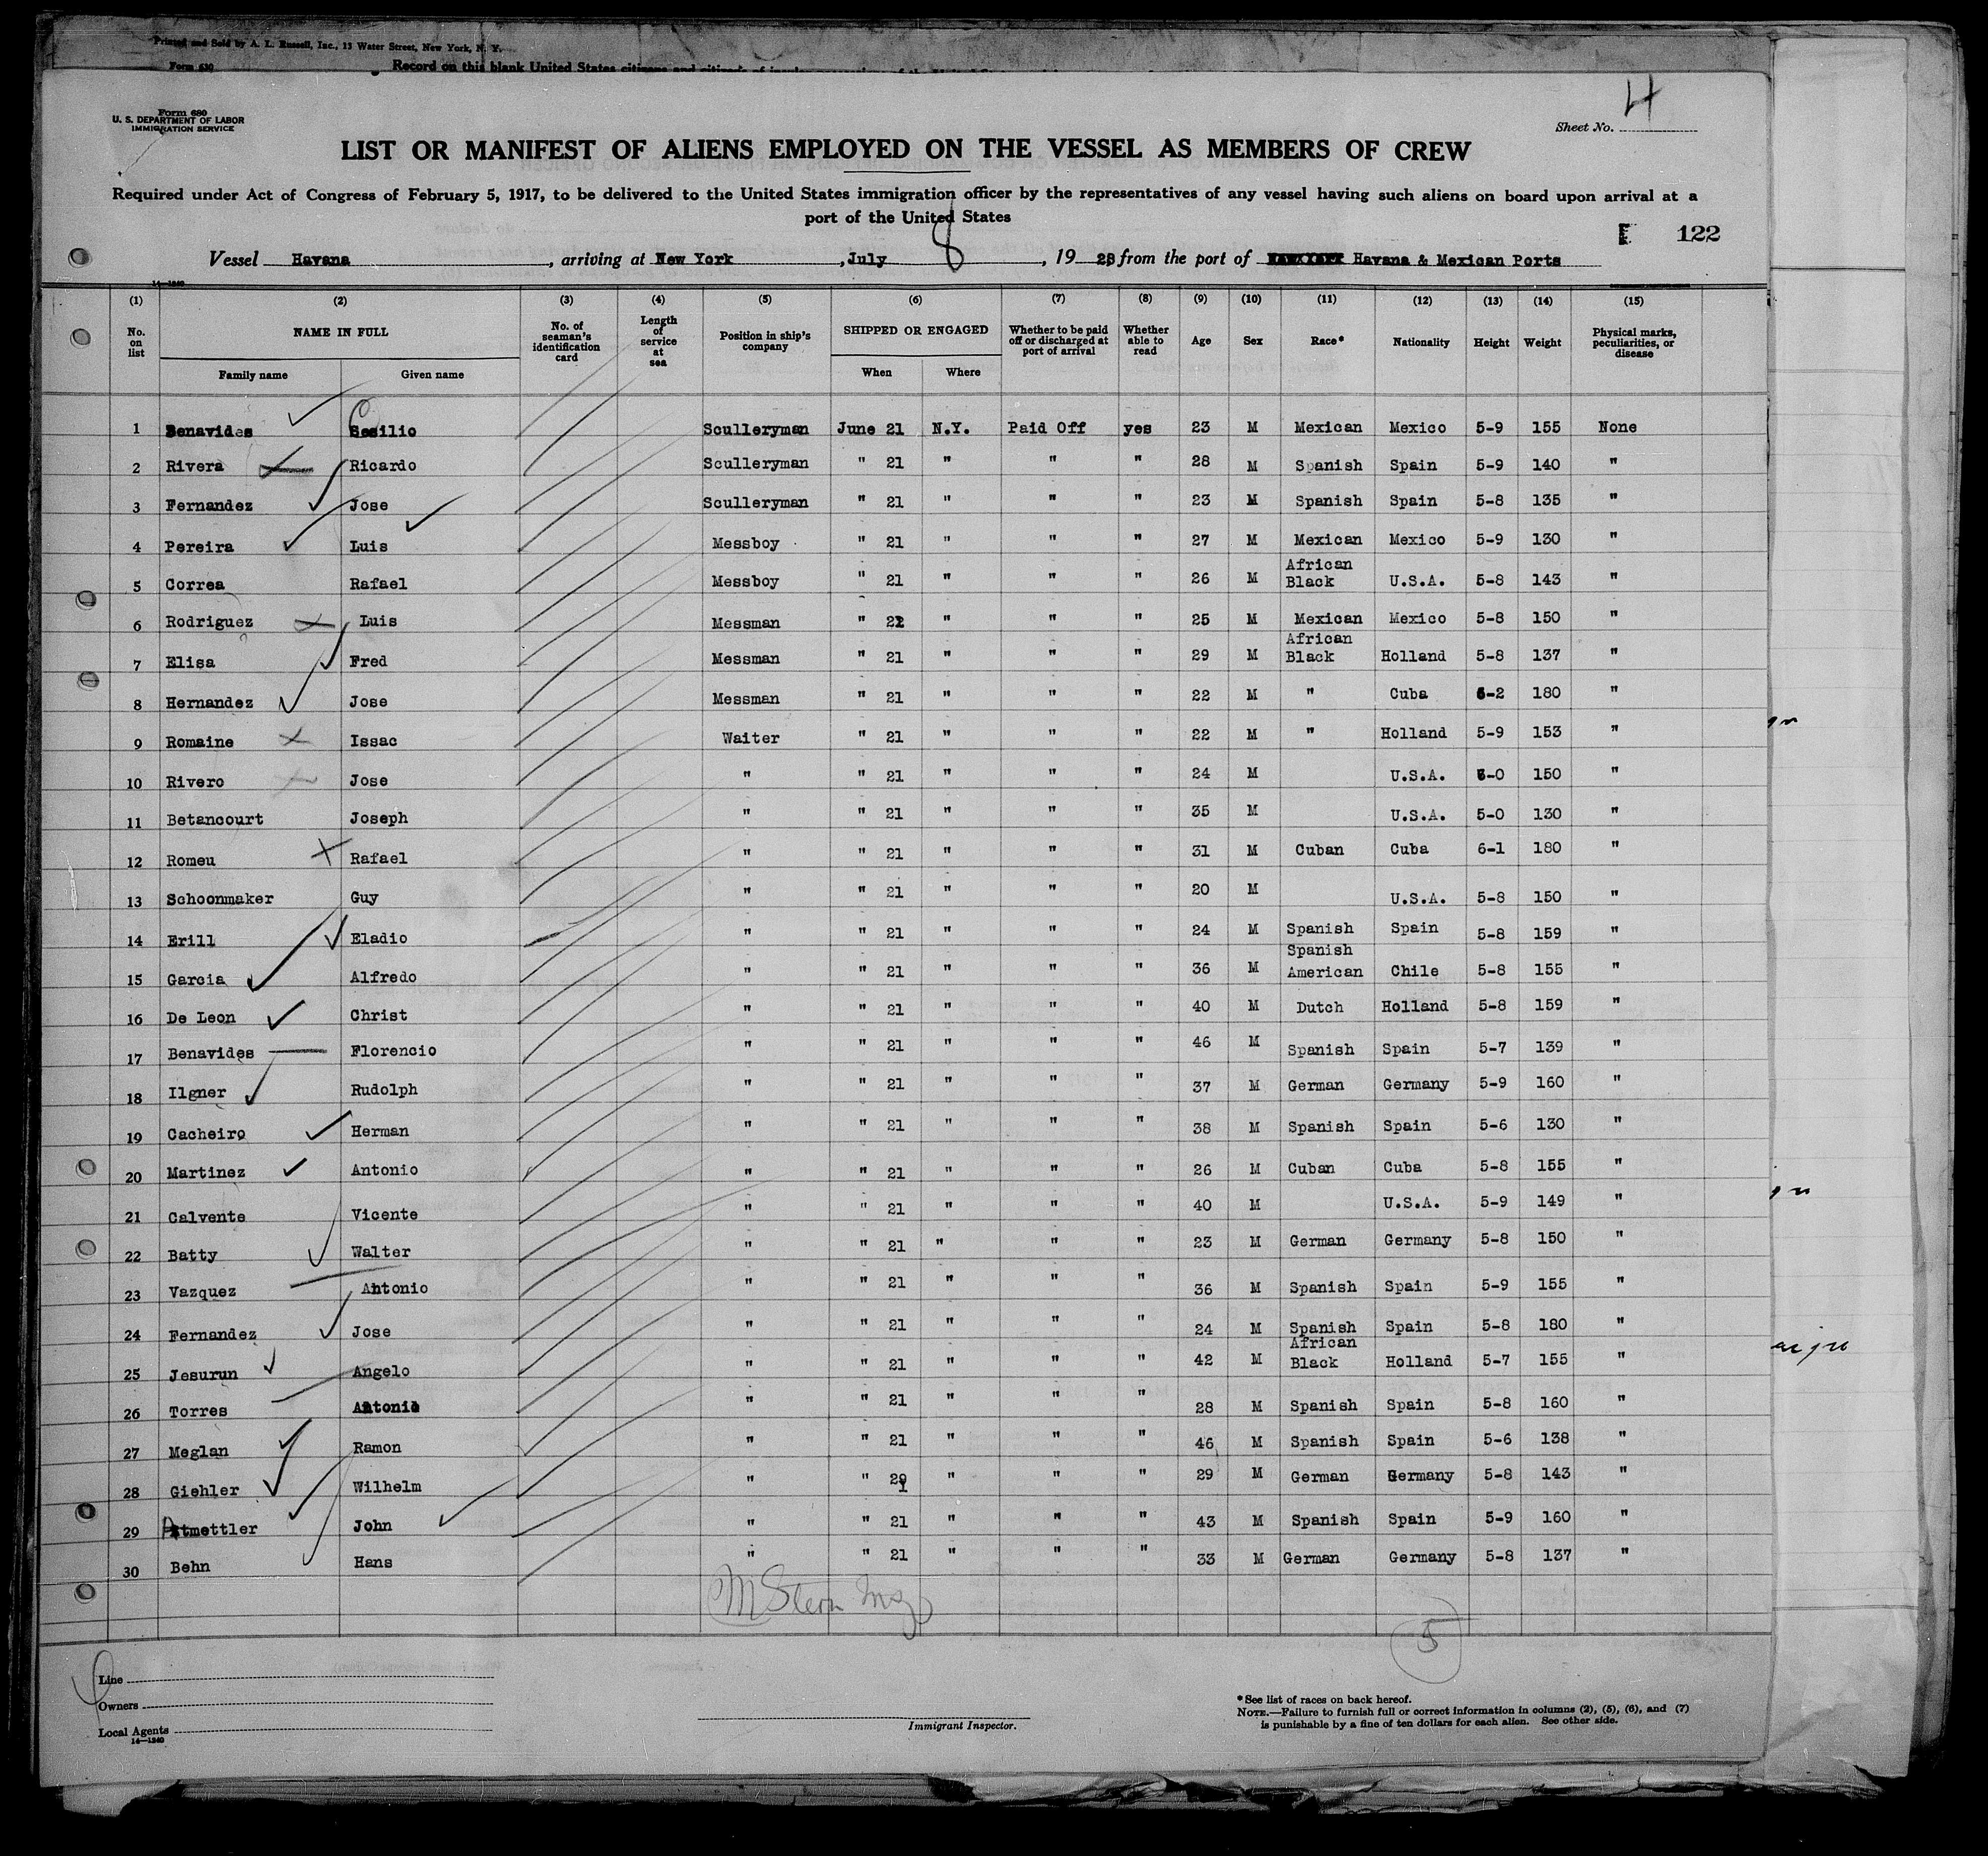 Printed and Sold by A. L. Russell, Inc., 13 Water Street, New York, N. Y.
Form 630
Record on this blank United States citizens and
Form 680
U. S. DEPARTMENT OF LABOR
IMMIGRATION SERVICE
Sheet No. 4
LIST OR MANIFEST OF ALIENS EMPLOYED ON THE VESSEL AS MEMBERS OF CREW
Required under Act of Congress of February 5, 1917, to be delivered to the United States immigration officer by the representatives of any vessel having such aliens on board upon arrival at a
port of the United States
E 122
Vessel Havana, arriving at New York, July 8, 1928 from the port of Havana & Mexican Ports
14—1240
(1) (2) (3) (4) (5) (6) (7) (8) (9) (10) (11) (12) (13) (14) (15)
No. on list NAME IN FULL No. of seaman's identification card Length of service at sea Position in ship's company SHIPPED OR ENGAGED Whether to be paid off or discharged at port of arrival Whether able to read Age Sex Race* Nationality Height Weight Physical marks, peculiarities, or disease
Family name Given name When Where
1 Benavides Cesilio Sculleryman June 21 N.Y. Paid Off yes 23 M Mexican Mexico 5-9 155 None
2 Rivera Ricardo Sculleryman " 21 " " " 28 M Spanish Spain 5-9 140 "
3 Fernandez Jose Sculleryman " 21 " " " 23 M Spanish Spain 5-8 135 "
4 Pereira Luis Messboy " 21 " " " 27 M Mexican Mexico 5-9 130 "
5 Correa Rafael Messboy " 21 " " " 26 M African Black U.S.A. 5-8 143 "
6 Rodriguez Luis Messman " 21 " " " 25 M Mexican Mexico 5-8 150 "
7 Elisa Fred Messman " 21 " " " 29 M African Black Holland 5-8 137 "
8 Hernandez Jose Messman " 21 " " " 22 M " Cuba 6-2 180 "
9 Romaine Issac Waiter " 21 " " " 22 M " Holland 5-9 153 "
10 Rivero Jose " " 21 " " " 24 M U.S.A. 6-0 150 "
11 Betancourt Joseph " " 21 " " " 35 M U.S.A. 5-0 130 "
12 Romeu Rafael " " 21 " " " 31 M Cuban Cuba 6-1 180 "
13 Schoonmaker Guy " " 21 " " " 20 M U.S.A. 5-8 150 "
14 Erill Eladio " " 21 " " " 24 M Spanish Spain 5-8 159 "
15 Garcia Alfredo " " 21 " " " 36 M Spanish American Chile 5-8 155 "
16 De Leon Christ " " 21 " " " 40 M Dutch Holland 5-8 159 "
17 Benavides Florencio " " 21 " " " 46 M Spanish Spain 5-7 139 "
18 Ilgner Rudolph " " 21 " " " 37 M German Germany 5-9 160 "
19 Cacheiro Herman " " 21 " " " 38 M Spanish Spain 5-6 130 "
20 Martinez Antonio " " 21 " " " 26 M Cuban Cuba 5-8 155 "
21 Calvente Vicente " " 21 " " " 40 M U.S.A. 5-9 149 "
22 Batty Walter " " 21 " " " 23 M German Germany 5-8 150 "
23 Vazquez Antonio " " 21 " " " 36 M Spanish Spain 5-9 155 "
24 Fernandez Jose " " 21 " " " 24 M Spanish Spain 5-8 180 "
25 Jesurun Angelo " " 21 " " " 42 M African Black Holland 5-7 155 "
26 Torres Antonio " " 21 " " " 28 M Spanish Spain 5-8 160 "
27 Meglan Ramon " " 21 " " " 46 M Spanish Spain 5-6 138 "
28 Giehler Wilhelm " " 21 " " " 29 M German Germany 5-8 143 "
29 Atmettler John " " 21 " " " 43 M Spanish Spain 5-9 160 "
30 Behn Hans " " 21 " " " 33 M German Germany 5-8 137 "
M Stern
5
Line
Owners
Local Agents
14—1240
Immigrant Inspector.
*See list of races on back hereof.
NOTE.—Failure to furnish full or correct information in columns (2), (5), (6), and (7)
is punishable by a fine of ten dollars for each alien. See other side.